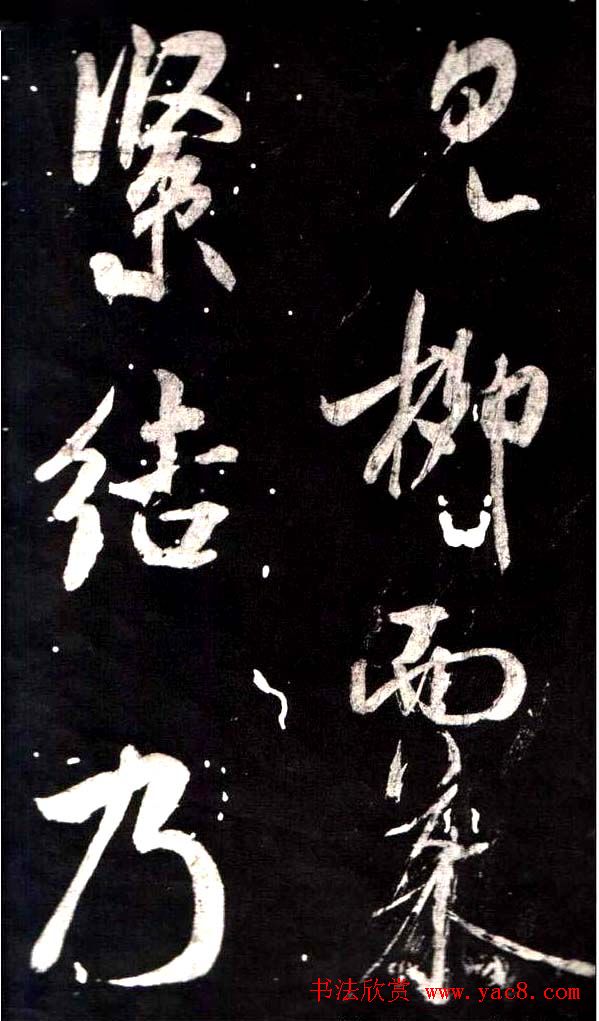 見柳而慕
緊結乃
书法欣赏 www.yac8.com